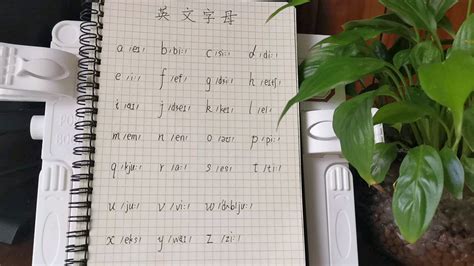 英文字母
a /eɪ/ b /biː/ c /siː/ d /diː/
e /iː/ f /ef/ g /dʒiː/ h /eɪtʃ/
i /aɪ/ j /dʒeɪ/ k /keɪ/ l /el/
m /em/ n /en/ o /əʊ/ p /piː/
q /kjuː/ r /ɑː/ s /es/ t /tiː/
u /juː/ v /viː/ w /ˈdʌbljuː/
x /eks/ y /waɪ/ z /ziː/